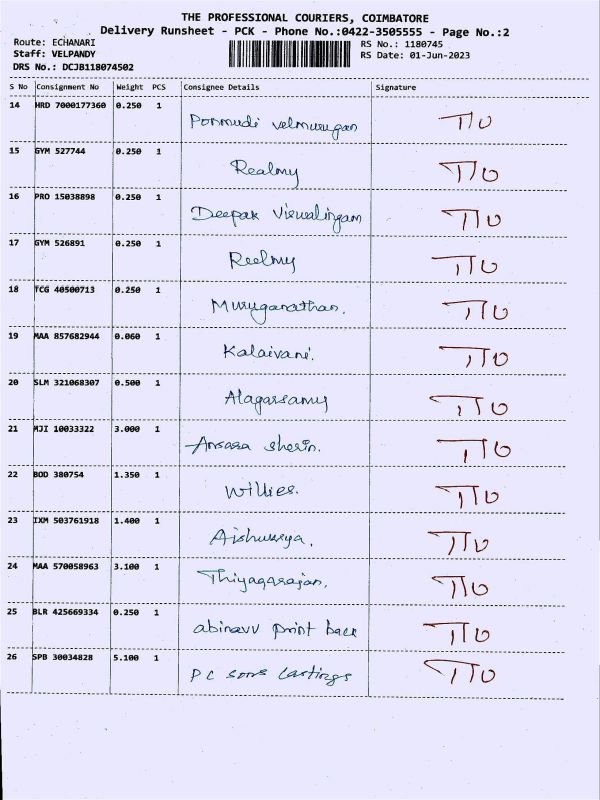 THE PROFESSIONAL COURIERS, COIMBATORE
Delivery Runsheet - PCK - Phone No.:0422-3505555 - Page No.:2
Route: ECHANARI RS No.: 1180745
Staff: VELPANDY RS Date: 01-Jun-2023
DRS No.: DCJB118074502
S No Consignment No Weight PCS Consignee Details Signature
14 HRD 7000177360 0.250 1
Ponmudi velmurugan
15 GYM 527744 0.250 1
Realmy
16 PRO 15038898 0.250 1
Deepak Viswalingam
17 GYM 526891 0.250 1
Reelmy
18 TCG 40500713 0.250 1
Muruganathan.
19 MAA 857682944 0.060 1
Kalaivani.
20 SLM 321068307 0.500 1
Alagarsamy
21 MJI 10033322 3.000 1
Ansara sherin.
22 BOD 380754 1.350 1
Willies.
23 IXM 503761918 1.400 1
Aishwarya.
24 MAA 570058963 3.100 1
Thiyagarajan.
25 BLR 425669334 0.250 1
abinavv print back
26 SPB 30034828 5.100 1
PC sons Castings